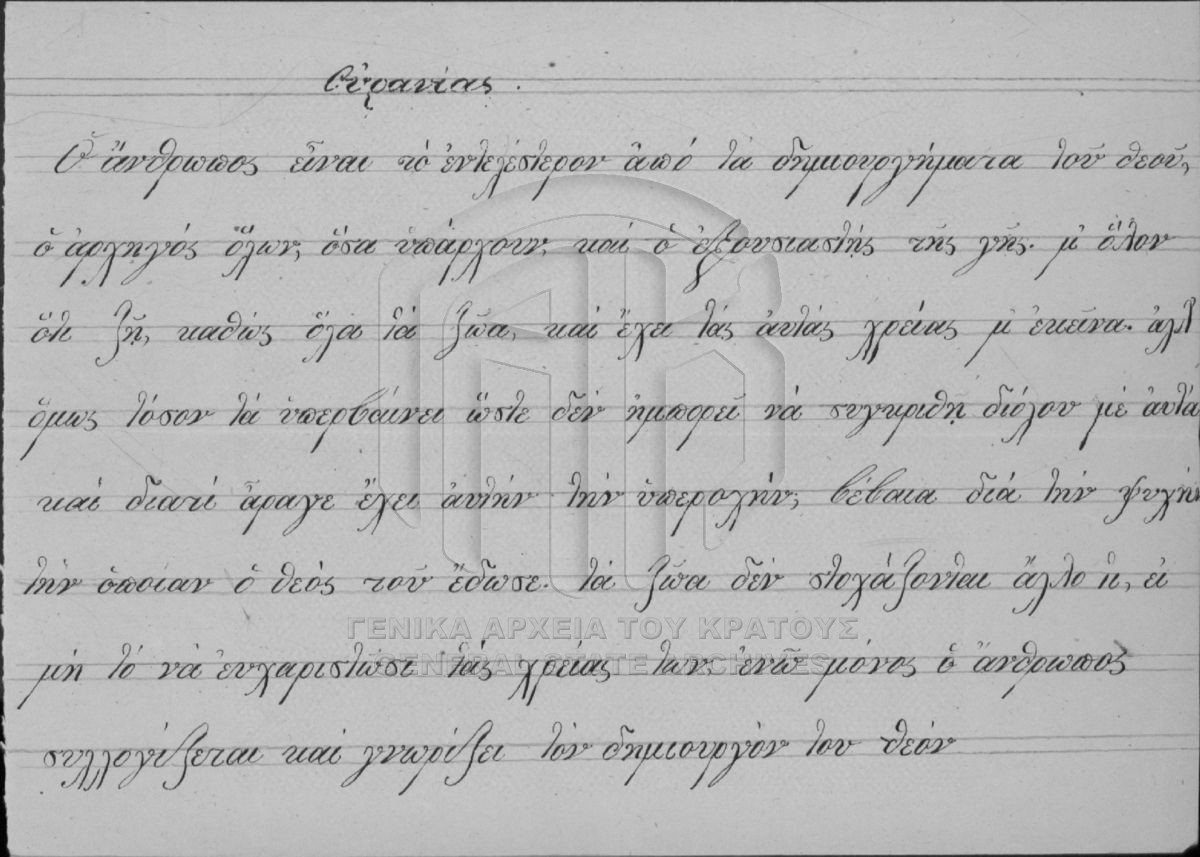 Οὐρανίας.
Ὁ ἄνθρωπος εἶναι τὸ ἐντελέστερον ἀπό τά δημιουργήματα τοῦ θεοῦ,
ὁ ἀρχηγός ὅλων, ὅσα ὑπάρχουν, καί ὁ ἐξουσιαστής τῆς γῆς. μ' ὅλον
ὅτι ζῆ, καθώς ὅλα τά ζῶα, καί ἔχει τάς ἀυτάς χρείας μ' ἐκεῖνα. ἀλλ'
ὅμως τόσον τά ὑπερβαίνει ὥστε δέν ἠμπορεῖ νά συγκριθῇ διόλου μέ ἀυτά
καί διατί ἄραγε ἔχει ἀυτήν τήν ὑπεροχήν; βέβαια διά τήν ψυχήν
τήν ὁποίαν ὁ θεός τοῦ ἔδωσε. τά ζῶα δέν στοχάζονται ἄλλο τι, εἰ
μή τό νά ἐυχαριστῶσι τάς χρείας των, ἐνῶ μόνος ὁ ἄνθρωπος
συλλογίζεται καί γνωρίζει τόν δημιουργόν του θεόν
ΓΕΝΙΚΑ ΑΡΧΕΙΑ ΤΟΥ ΚΡΑΤΟΥΣ
GENERAL STATE ARCHIVES